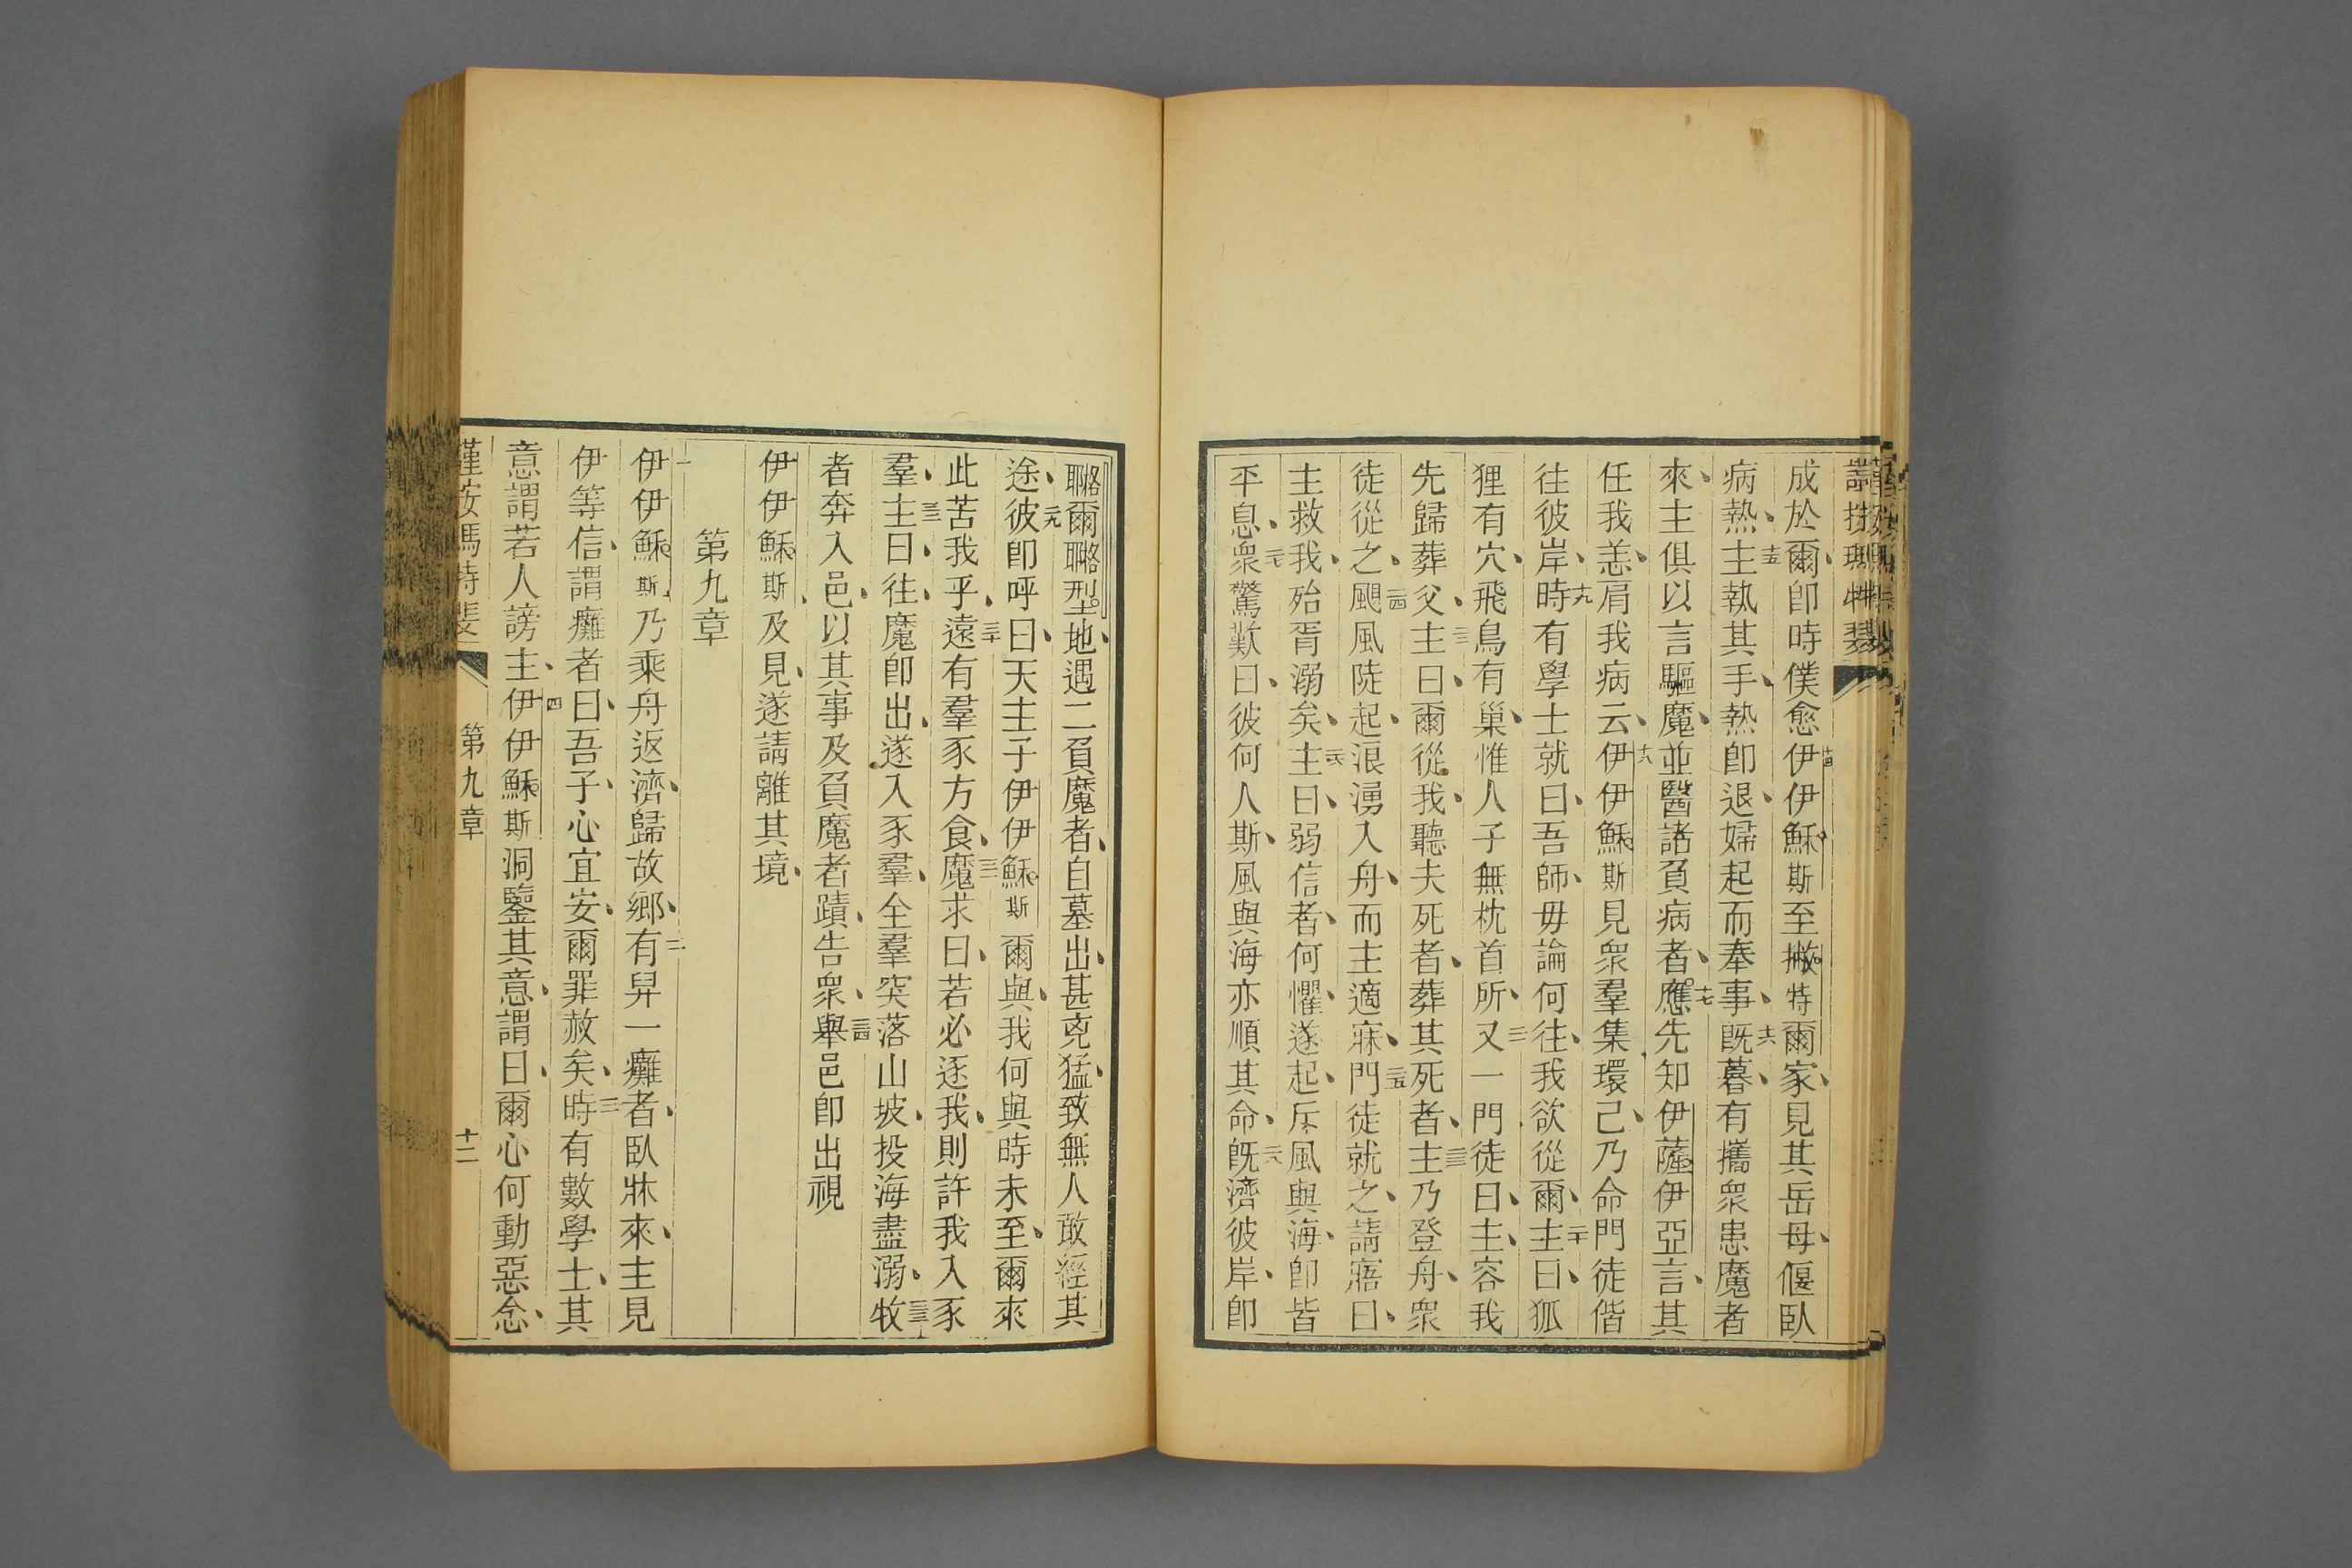 成於爾、卽時僕愈十四伊伊穌斯至撇特爾家、見其岳母、偃臥
病熱、十五主執其手、熱卽退、婦起而奉事、十六旣暮、有攜衆患魔者
來、主俱以言驅魔、並醫諸負病者、十七應先知伊薩伊亞言、其
任我恙、肩我病云、十八伊伊穌斯見衆羣集環己、乃命門徒偕
往彼岸、十九時有學士就曰、吾師、毋論何往、我欲從爾、二十主曰、狐
狸有穴、飛鳥有巢、惟人子無枕首所、二一又一門徒曰、主、容我
先歸葬父、二二主曰、爾從我、聽夫死者、葬其死者、二三主乃登舟、衆
徒從之、二四颶風陡起、浪湧入舟、而主適寐、二五門徒就之、請寤曰、
主救我、殆胥溺矣、二六主曰、弱信者、何懼、遂起、斥風與海、卽皆
平息、二七衆驚歎曰、彼何人斯、風與海亦順其命、二八旣濟彼岸、卽
㗉爾㗉型地、遇二負魔者、自墓出、甚兇猛、致無人敢經其
途、二九彼卽呼曰、天主子伊伊穌斯爾與、我何與、時未至、爾來
此苦我乎、三十遠有羣豕方食、三一魔求曰、若必逐我、則許我入豕
羣、三二主曰、往、魔卽出、遂入豕羣、全羣突落山坡、投海盡溺、三三牧
者奔入邑、以其事及負魔者蹟、告衆、三四舉邑卽出視
伊伊穌斯、及見、遂請離其境、
第九章
一伊伊穌斯乃乘舟返濟、歸故鄉、二有舁一癱者、臥牀來、主見
伊等信、謂癱者曰、吾子、心宜安、爾罪赦矣、三時有數學士、其
意謂若人謗主、四伊伊穌斯洞鑒其意、謂曰、爾心何動惡念、
謹按馬特斐 第九章 十二